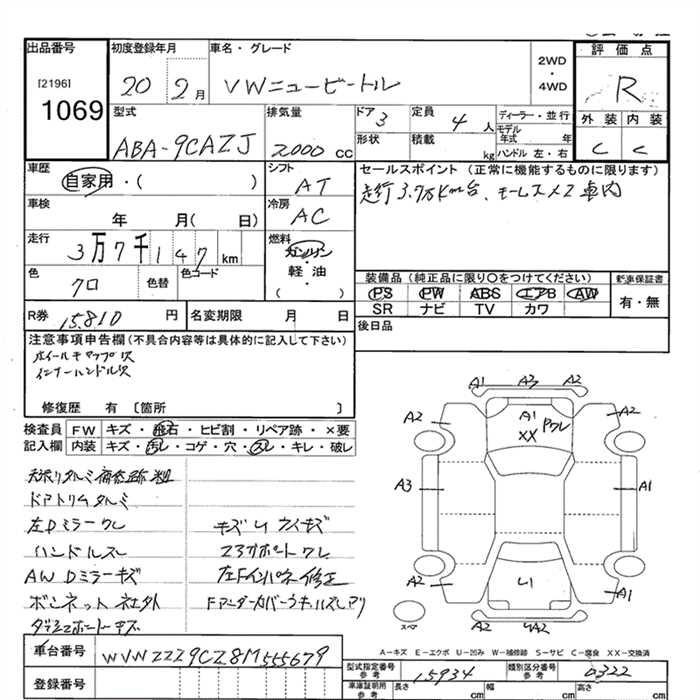 出品番号
[2196]
1069
初度登録年月
20 2月
車名・グレード
VWニュービートル
2WD
・
4WD
評価点
R
外装 内装
C C
型式
ABA-9CAZJ
排気量
2000 CC
ドア
3
形状
定員
4 人
積載
kg
ディーラー・並行
モデル年式 年
ハンドル 左・右
車歴
自家用・( )
シフト
AT
車検
年 月( 日)
冷房
AC
走行
3万7千147km
燃料
ガソリン
・
軽油
( )
色
クロ
色替
色コード
R券
15,810 円
名変期限 月 日
セールスポイント (正常に機能するものに限ります)
走行3.7万Km台、
装備品 (純正品に限り○をつけてください)
PS PW ABS エアB AW
SR ナビ TV カワ
新車保証書
有・無
後日品
注意事項申告欄(不具合内容等は具体的に記入して下さい)
ホイールキャップ欠
インナーハンドル欠
修復歴 有 〔箇所 〕
検査員記入欄
FW キズ・飛石・ヒビ割・リペア跡・×要
内装 キズ・汚レ・コゲ・穴・スレ・キレ・破レ
天張りタルミ補修跡粗
ドアトリムタルミ
左Dミラーワレ
ハンドルスレ
AW Dミラーキズ
ボンネット社外
キズUライキズ
左Fインパネ修正
A1 A3 A2
A2 A1 XX Pワレ A2
A3 A1
A2 U1 A1
A2 YA2
スペア
A-キズ E-エクボ U-凹み W-補修跡 S-サビ C-腐食 XX-交換済
車台番号
WVWZZZ9CZ8M555679
登録番号
型式指定番号 参考
15934
類別区分番号 参考
0322
車庫証明用 参考
長さ cm
幅 cm
高さ cm